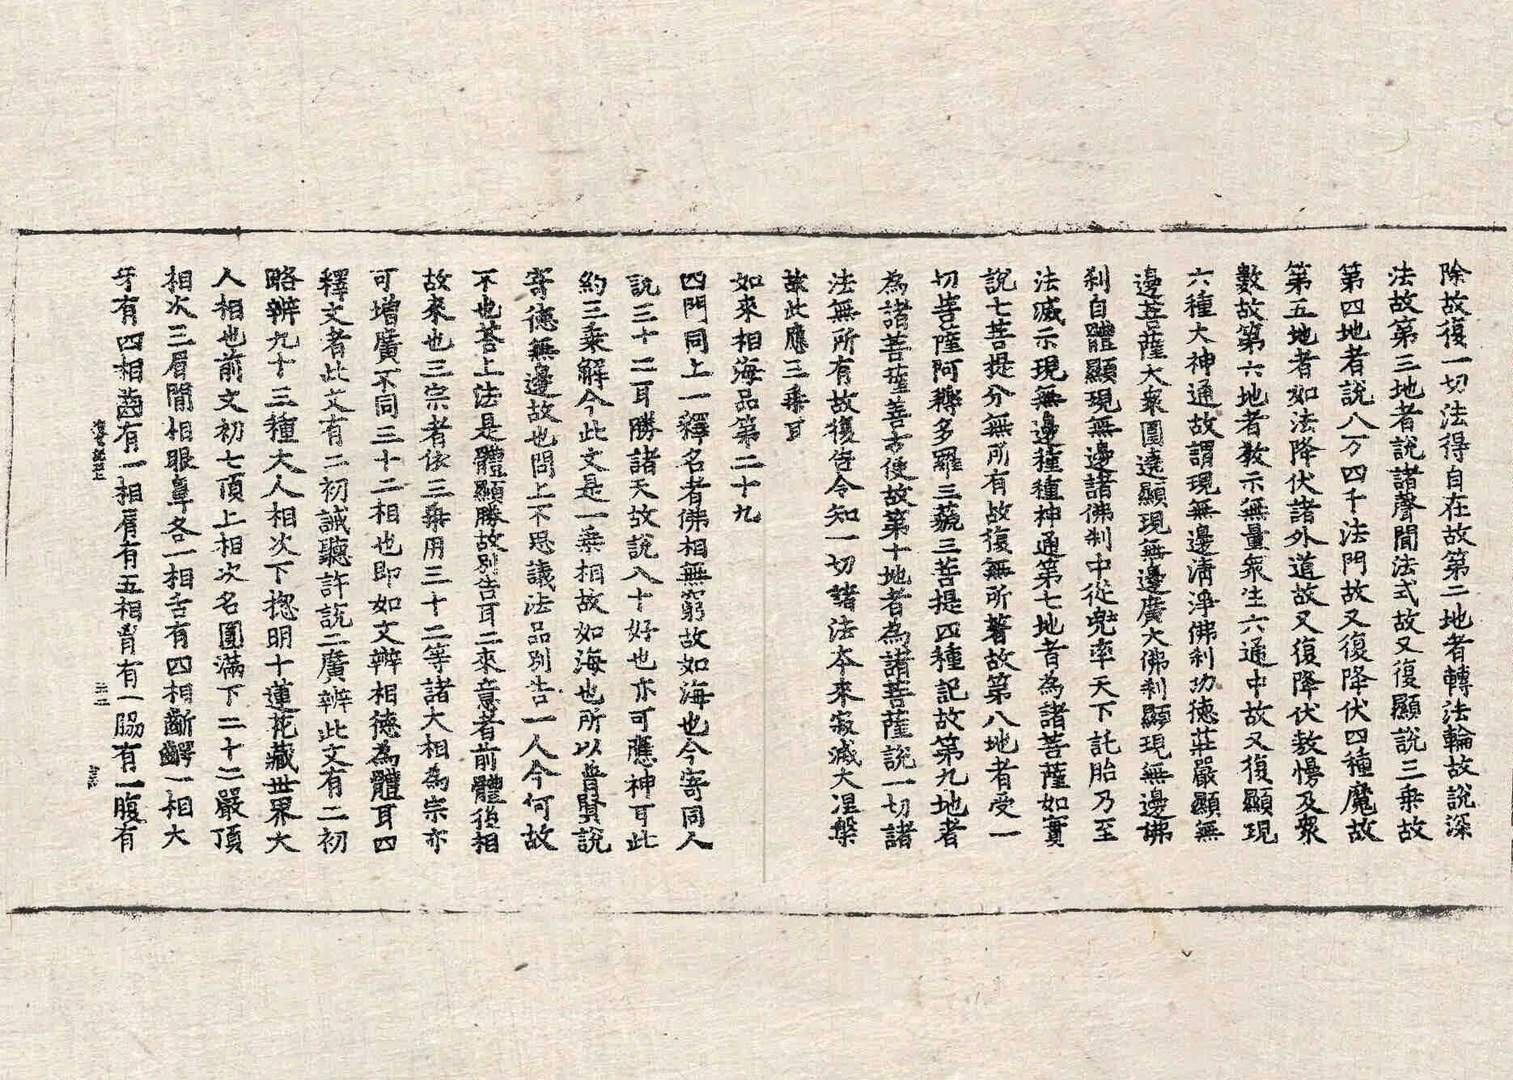 除故復一切法得自在故第二地者轉法輪故說深
法故第三地者說諸聲聞法式故又復顯說三乘故
第四地者說八万四千法門故又復降伏四種魔故
第五地者如法降伏諸外道故又復降伏敖慢及衆
數故第六地者教示無量衆生六通中故又復顯現
六種大神通故謂現無邊淸淨佛刹功德莊嚴顯無
邊菩薩大衆圍遶顯現無邊廣大佛刹顯現無邊佛
刹自體顯現無邊諸佛刹中從兜率天下託胎乃至
法滅示現無邊種種神通第七地者為諸菩薩如實
說七菩提分無所有故復無所著故第八地者受一
切菩薩阿耨多羅三藐三菩提四種記故第九地者
為諸菩薩善方便故第十地者為諸菩薩說一切諸
法無所有故復告令知一切諸法本來寂滅大涅槃
故此應三乘耳
如來相海品第二十九
四門同上一釋名者佛相無窮故如海也今寄同人
說三十二耳勝諸天故說八十好也亦可應神耳此
約三乘解今此文是一乘相故如海也所以普賢說
寄德無邊故也問上不思議法品別告一人今何故
不也荅上法是體顯勝故別告耳二來意者前體後相
故來也三宗者依三乘用三十二等諸大相為宗亦
可增廣不同三十二相也即如文辨相德為體耳四
釋文者此文有二初誡聽許說二廣辨此文有二初
略辨九十三種大人相次下揔明十蓮花藏世界大
人相也前文初七頂上相次名圓滿下二十二嚴頂
相次三眉間相眼鼻各一相舌有四相齗齶一相大
牙有四相齒有一相脣有五相有一脇有一腹有